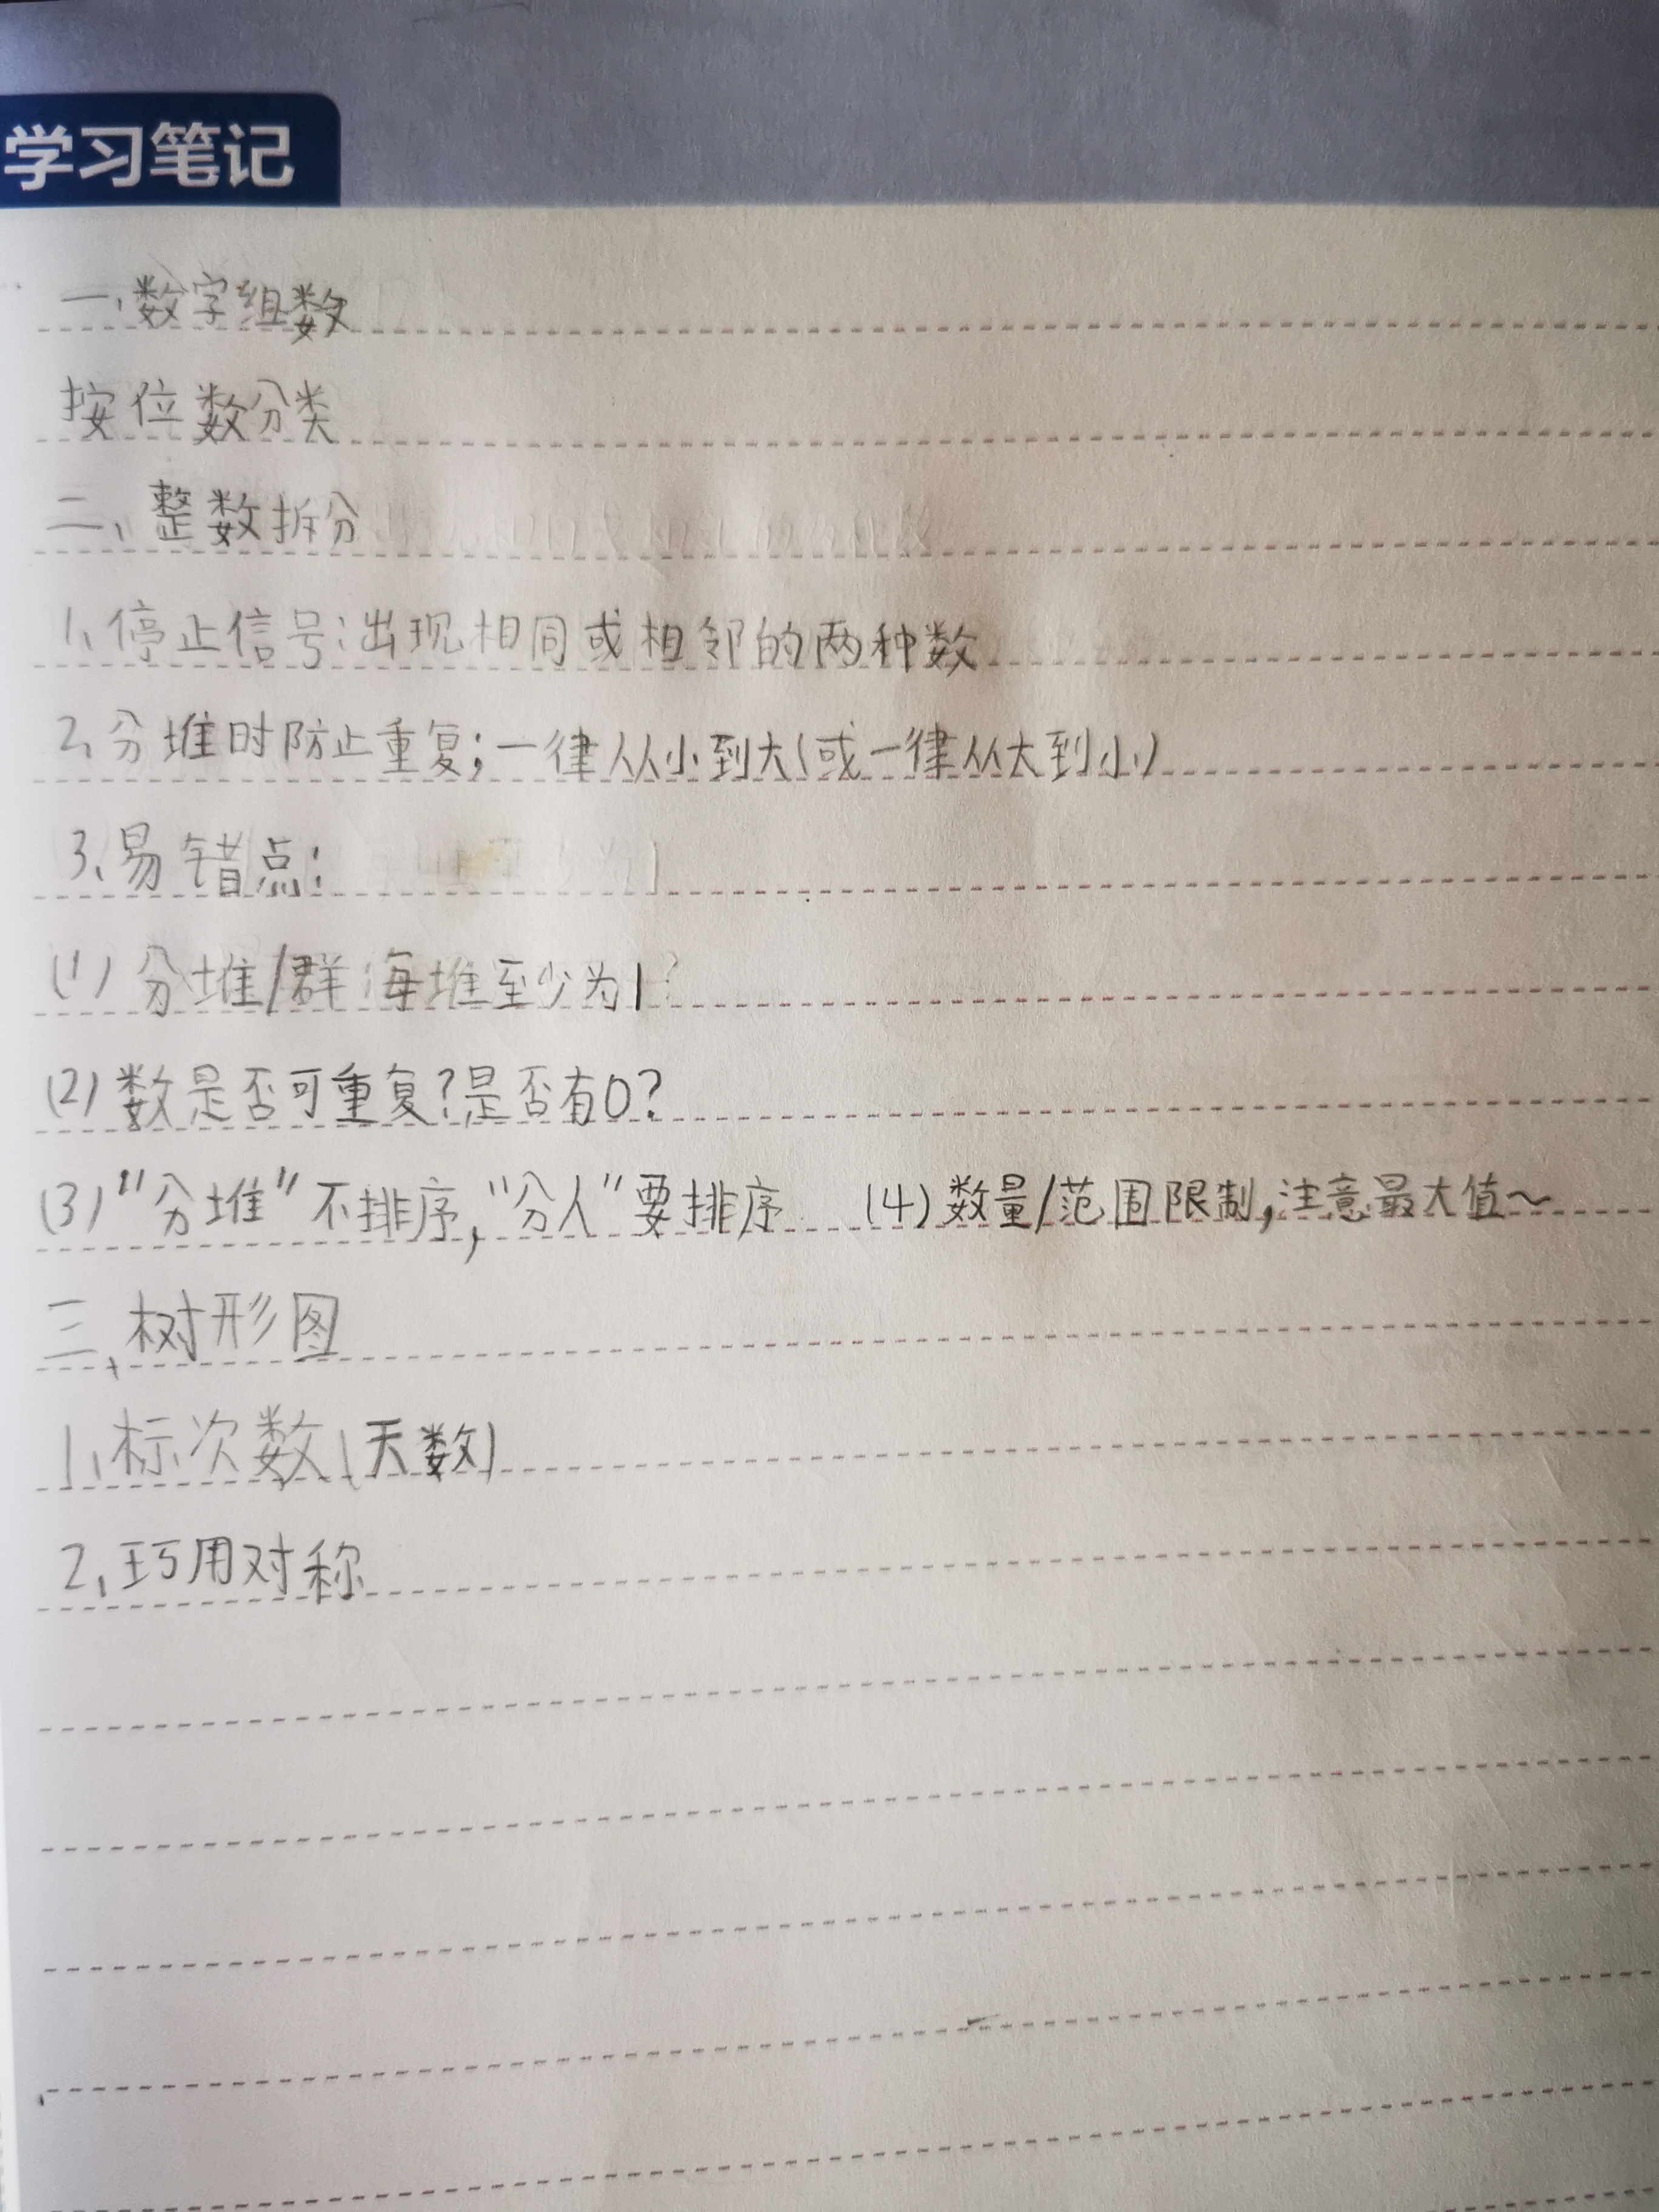 学习笔记
一、数字组数
按位数分类
二、整数拆分
1、停止信号:出现相同或相邻的两种数
2、分堆时防止重复;一律从小到大(或一律从大到小)
3、易错点:
(1)分堆/群 每堆至少为1
(2)数是否可重复?是否有0?
(3)"分堆"不排序,"分人"要排序 (4)数量/范围限制,注意最大值~
三、树形图
1、标次数(天数)
2、巧用对称